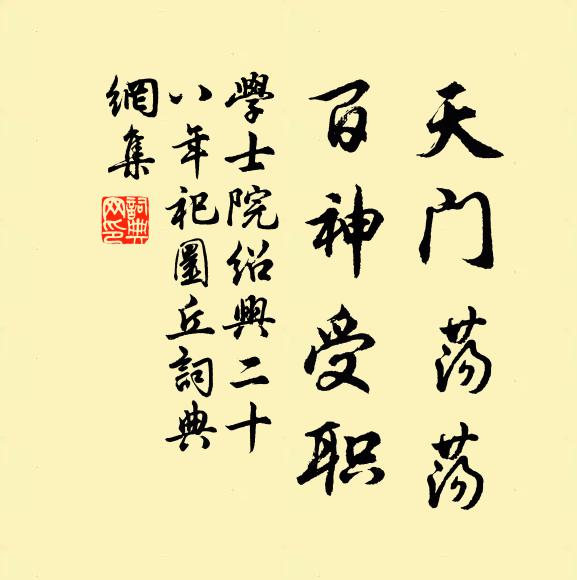 天门荡荡
百神受职
學士院绍興二十
八年祀圜丘詞典
網集
詞典网印